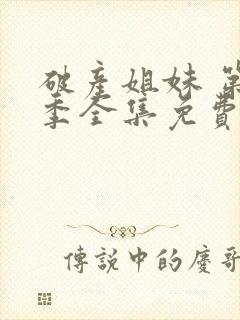 破产姐妹 第
季全集免費
傳説中的慶哥